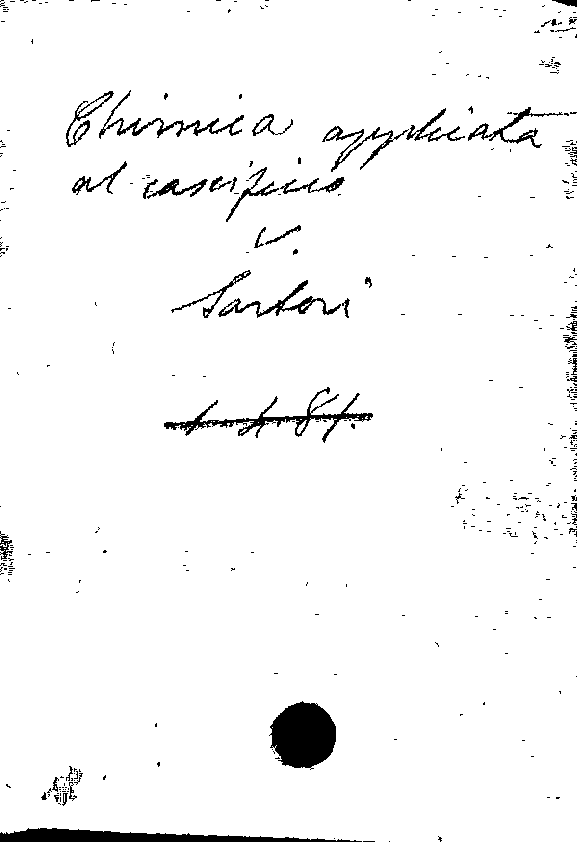 Chimica applicata
al caseificio
V.
Sartori
1. 4. 81.